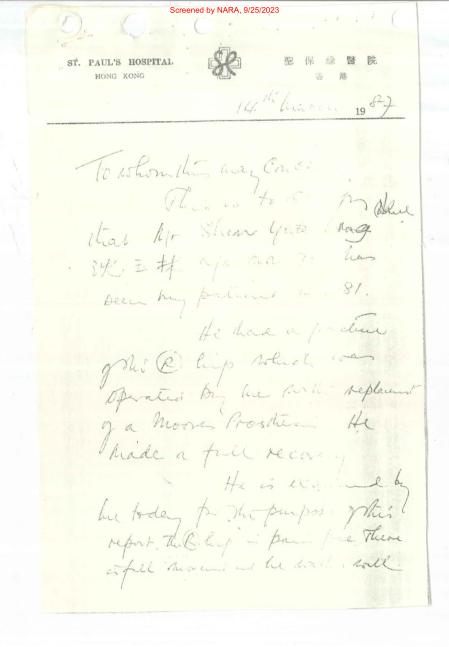 Screened by NARA, 9/25/2023
ST. PAUL'S HOSPITAL
HONG KONG
聖保祿醫院
香港
14th March 1987
To whom this may Conce
This is to
that Mr
has
been my patient 81.
He had a fracture
of his (R) hip which was
operated by me with replacement
of a Moore's Prosthesis He
made a full recovery
He is examined by
me today for the purpose of this
report. The (R) hip is pain free There
is full movement he walks well